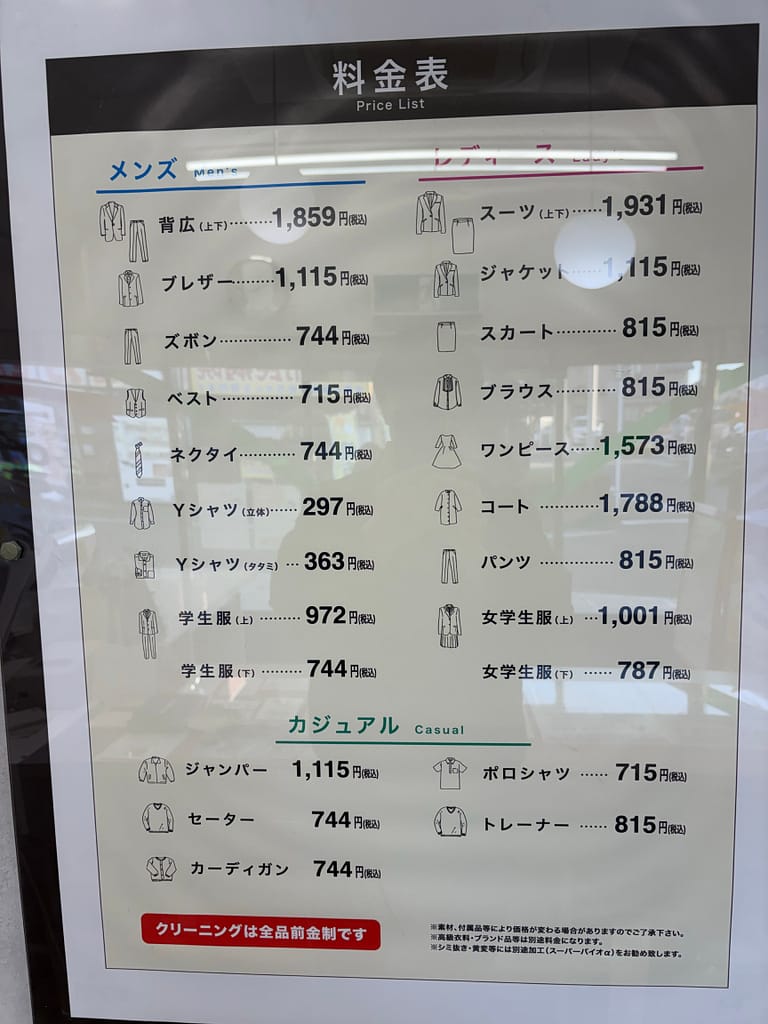 料金表
Price List
メンズ Men's
背広(上下)………1,859円(税込)
ブレザー………1,115円(税込)
ズボン……………744円(税込)
ベスト……………715円(税込)
ネクタイ…………744円(税込)
Yシャツ(立体)……297円(税込)
Yシャツ(タタミ)…363円(税込)
学生服(上)………972円(税込)
学生服(下)………744円(税込)
レディース Lady's
スーツ(上下)……1,931円(税込)
ジャケット……1,115円(税込)
スカート…………815円(税込)
ブラウス…………815円(税込)
ワンピース……1,573円(税込)
コート…………1,788円(税込)
パンツ……………815円(税込)
女学生服(上)…1,001円(税込)
女学生服(下)……787円(税込)
カジュアル Casual
ジャンパー 1,115円(税込)
セーター 744円(税込)
カーディガン 744円(税込)
ポロシャツ……715円(税込)
トレーナー……815円(税込)
クリーニングは全品前金制です
※素材、付属品等により価格が変わる場合がありますのでご了承下さい。
※高級衣料・ブランド品等は別途料金になります。
※シミ抜き・黄変等には別途加工(スーパーバイオα)をお勧め致します。